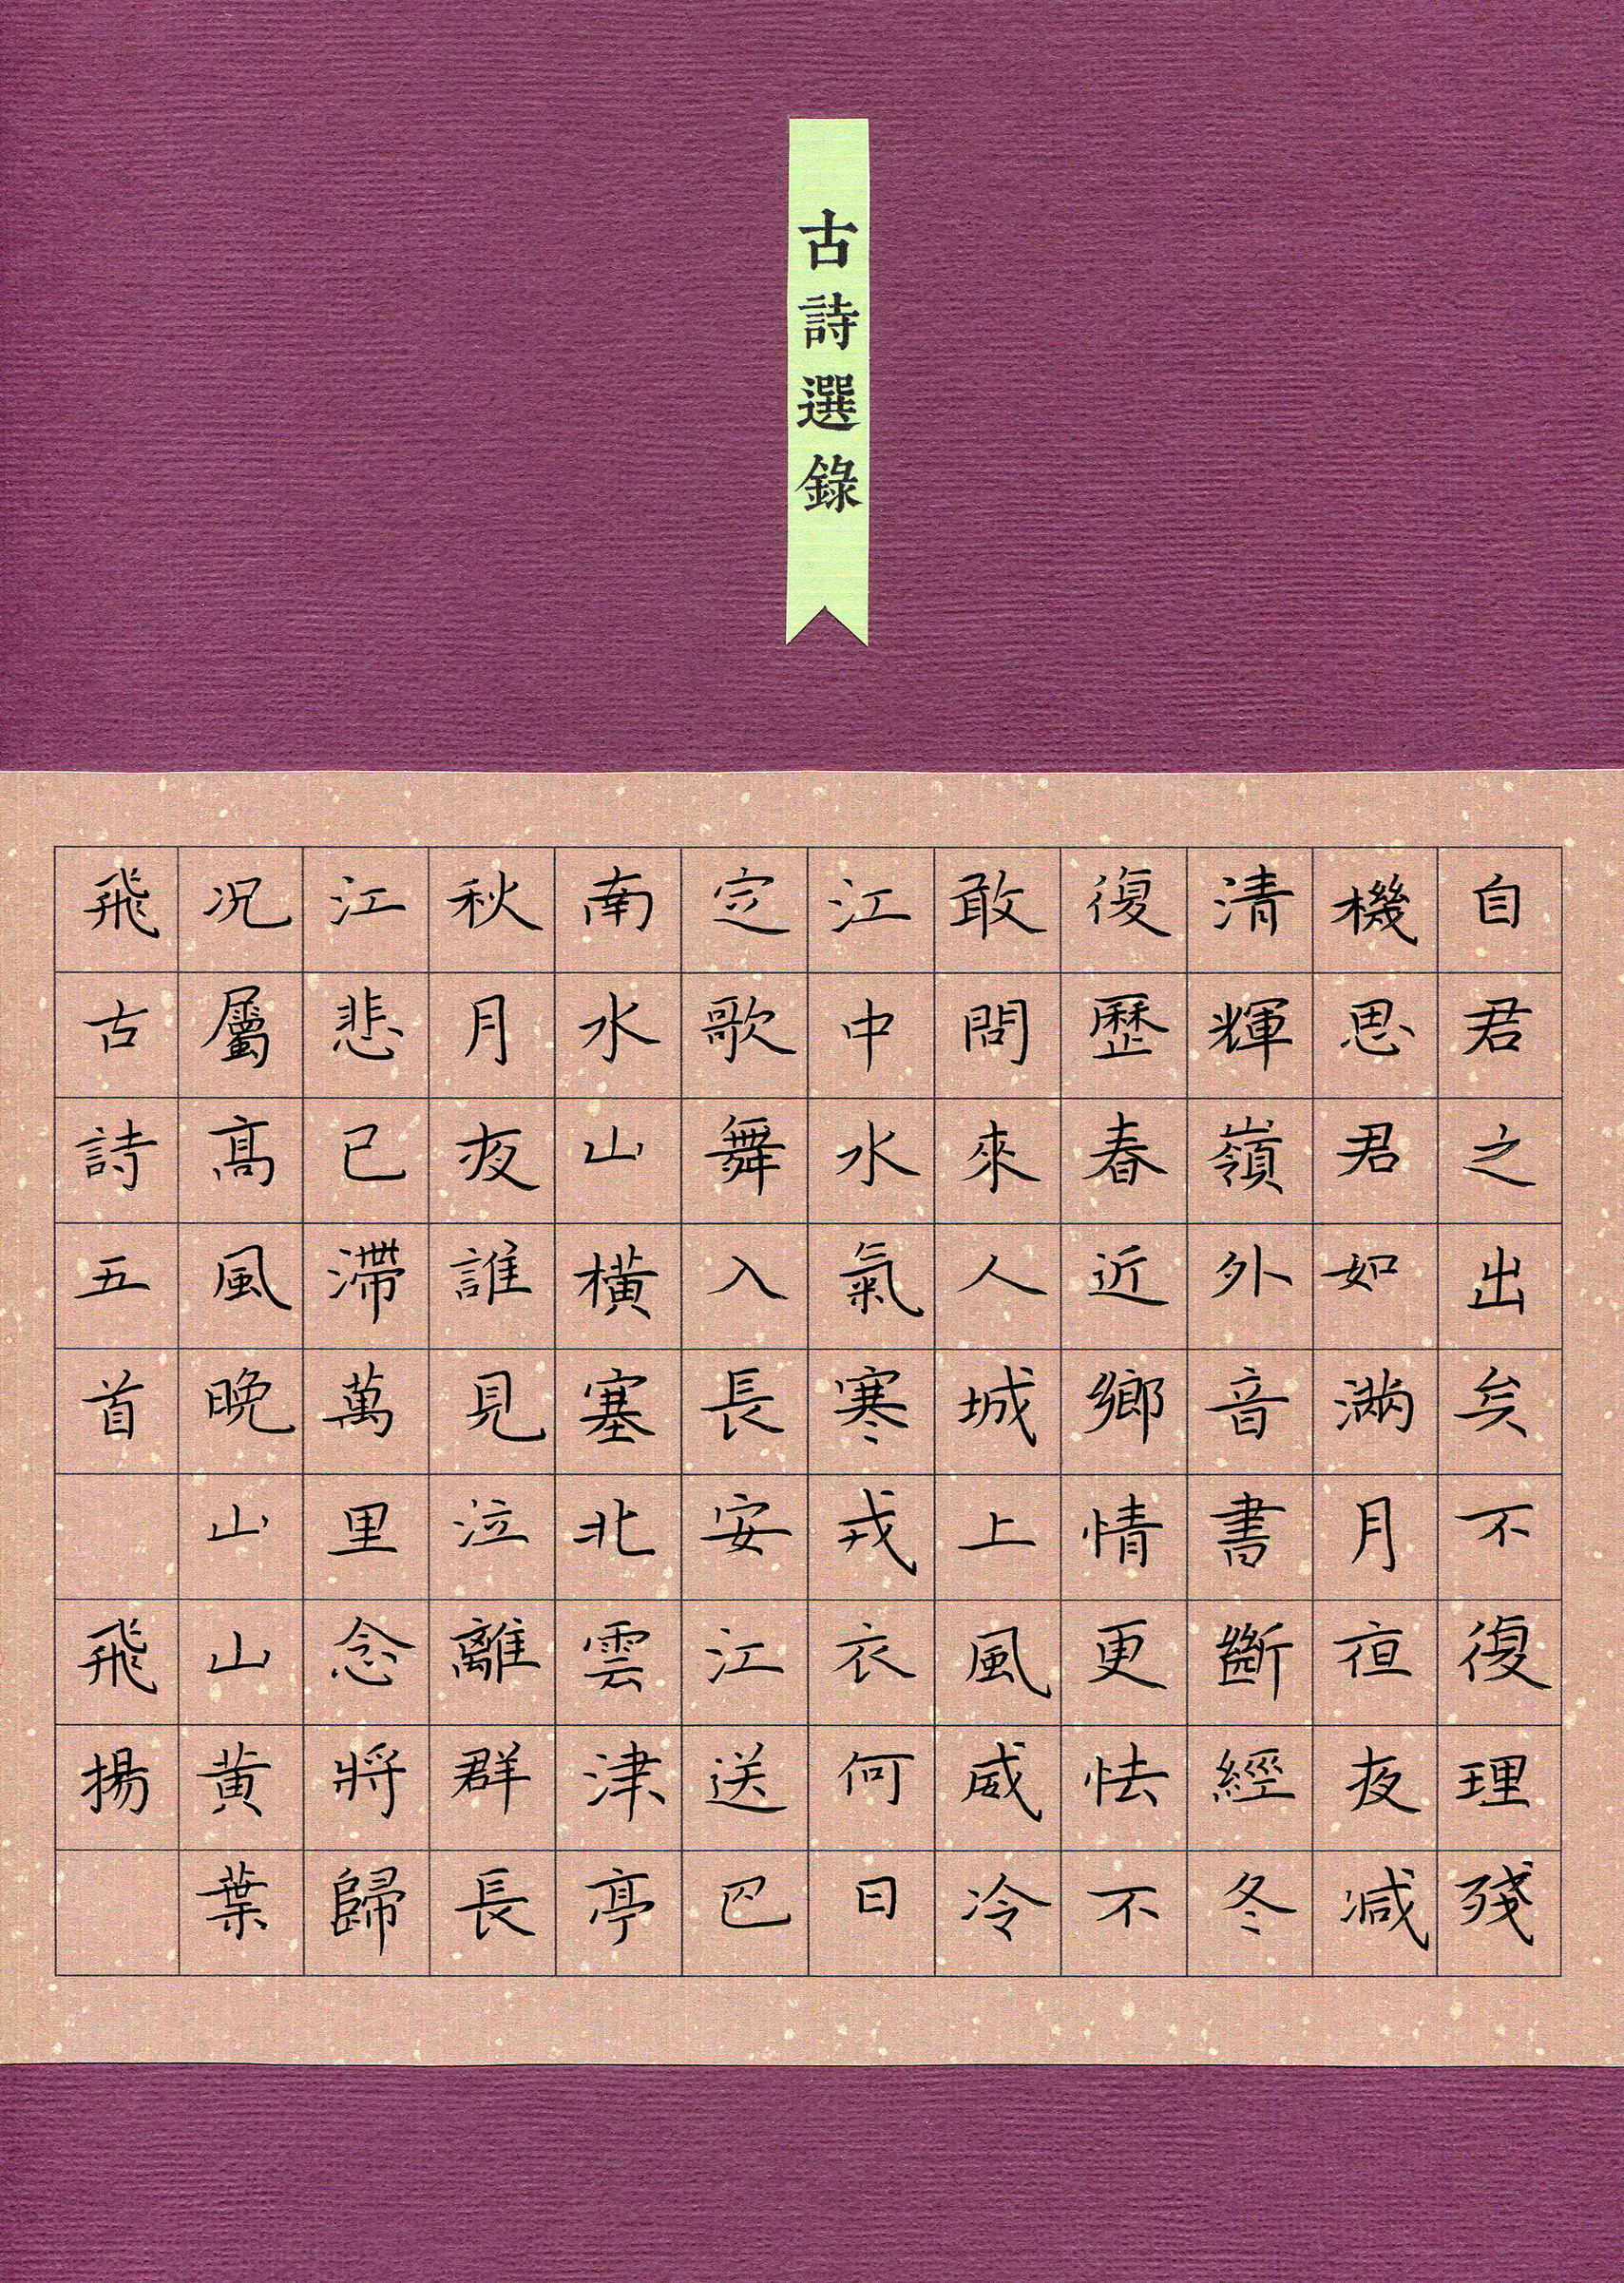 古詩選錄
自君之出矣不復理殘
機思君如滿月亱夜减
清輝嶺外音書斷經冬
復歷春近鄉情更怯不
敢問來人城上風威冷
江中水氣寒戎衣何日
定歌舞入長安江送巴
南水山橫塞北雲津亭
秋月夜誰見泣離群長
江悲已滯萬里念將歸
况屬高風晚山山黄葉
飛古詩五首 飛揚